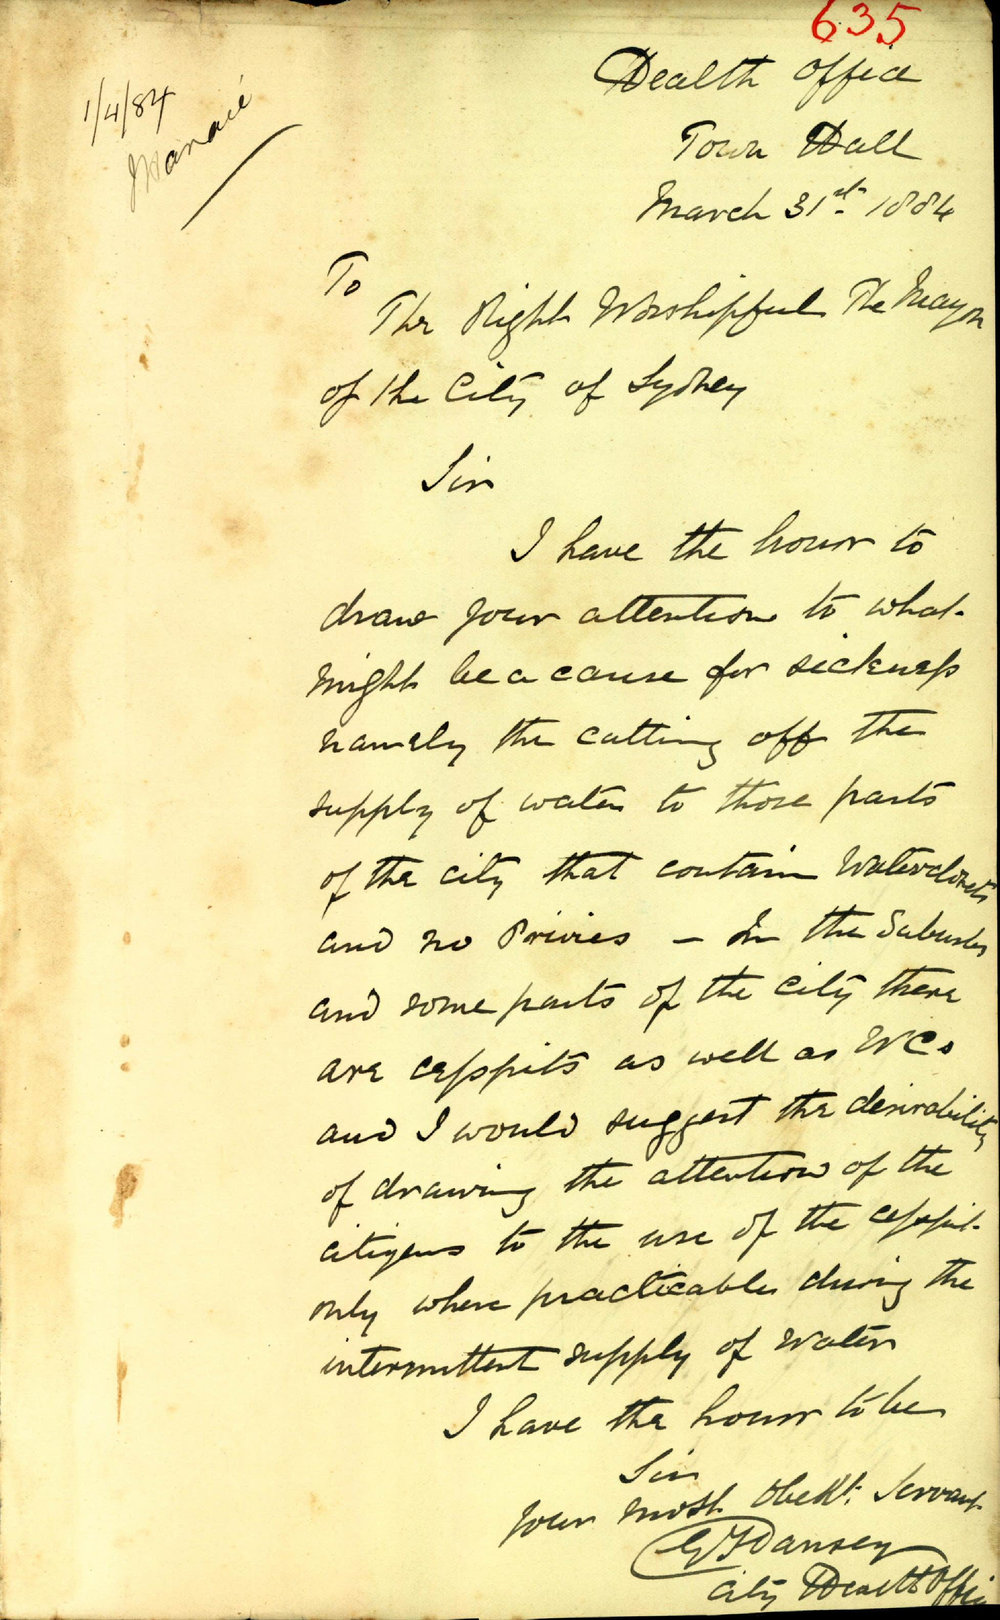 635
Health Office
Town Hall
March 31st. 1884
1/4/84
To
The Right Worshipful The Mayor
of the City of Sydney
Sir
I have the honor to
draw your attention to what
might be a cause for sickness
namely the cutting off the
supply of water to those parts
of the city that contain Waterclosets
and no Privies – In the Suburbs
and some parts of the city there
are cesspits as well as WCs
and I would suggest the desirability
of drawing the attention of the
citizens to the use of the cesspit
only where practicable during the
intermittent supply of water
I have the honor to be
Sir
Your most Obedt. Servant
G F Dansey
City Health Offic